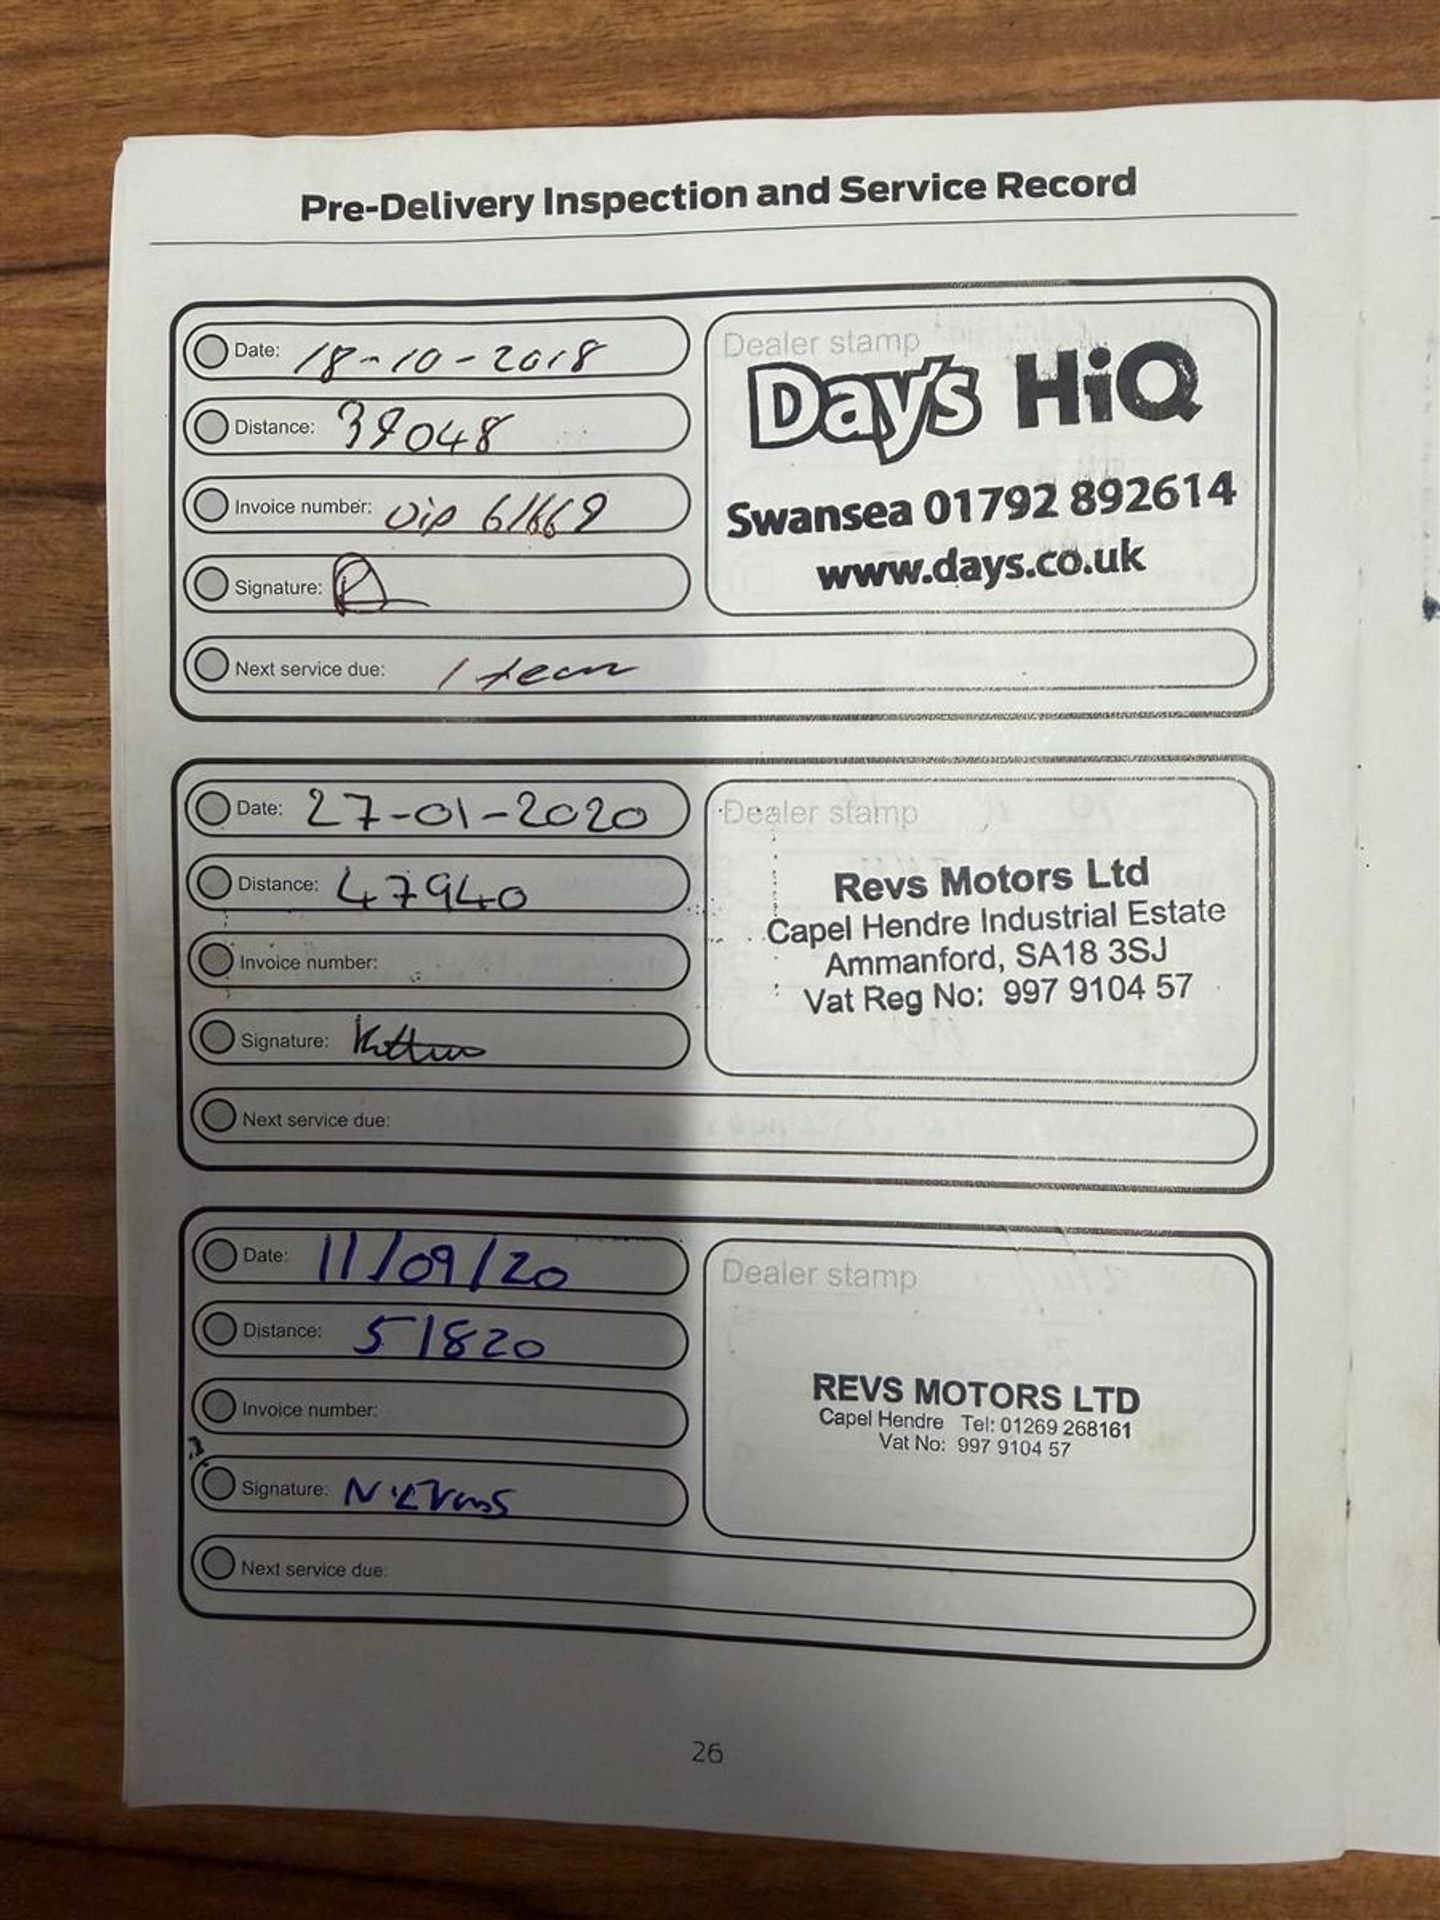 Pre-Delivery Inspection and Service Record
Date: 18-10-2018
Distance: 39048
Invoice number: 61669
Signature:
Next service due: 1 year
Dealer stamp
Day's HiQ
Swansea 01792 892614
www.days.co.uk
Date: 27-01-2020
Distance: 47940
Invoice number:
Signature:
Next service due:
Dealer stamp
Revs Motors Ltd
Capel Hendre Industrial Estate
Ammanford, SA18 3SJ
Vat Reg No: 997 9104 57
Date: 11/09/20
Distance: 51820
Invoice number:
Signature:
Next service due:
Dealer stamp
REVS MOTORS LTD
Capel Hendre Tel: 01269 268161
Vat No: 997 9104 57
26